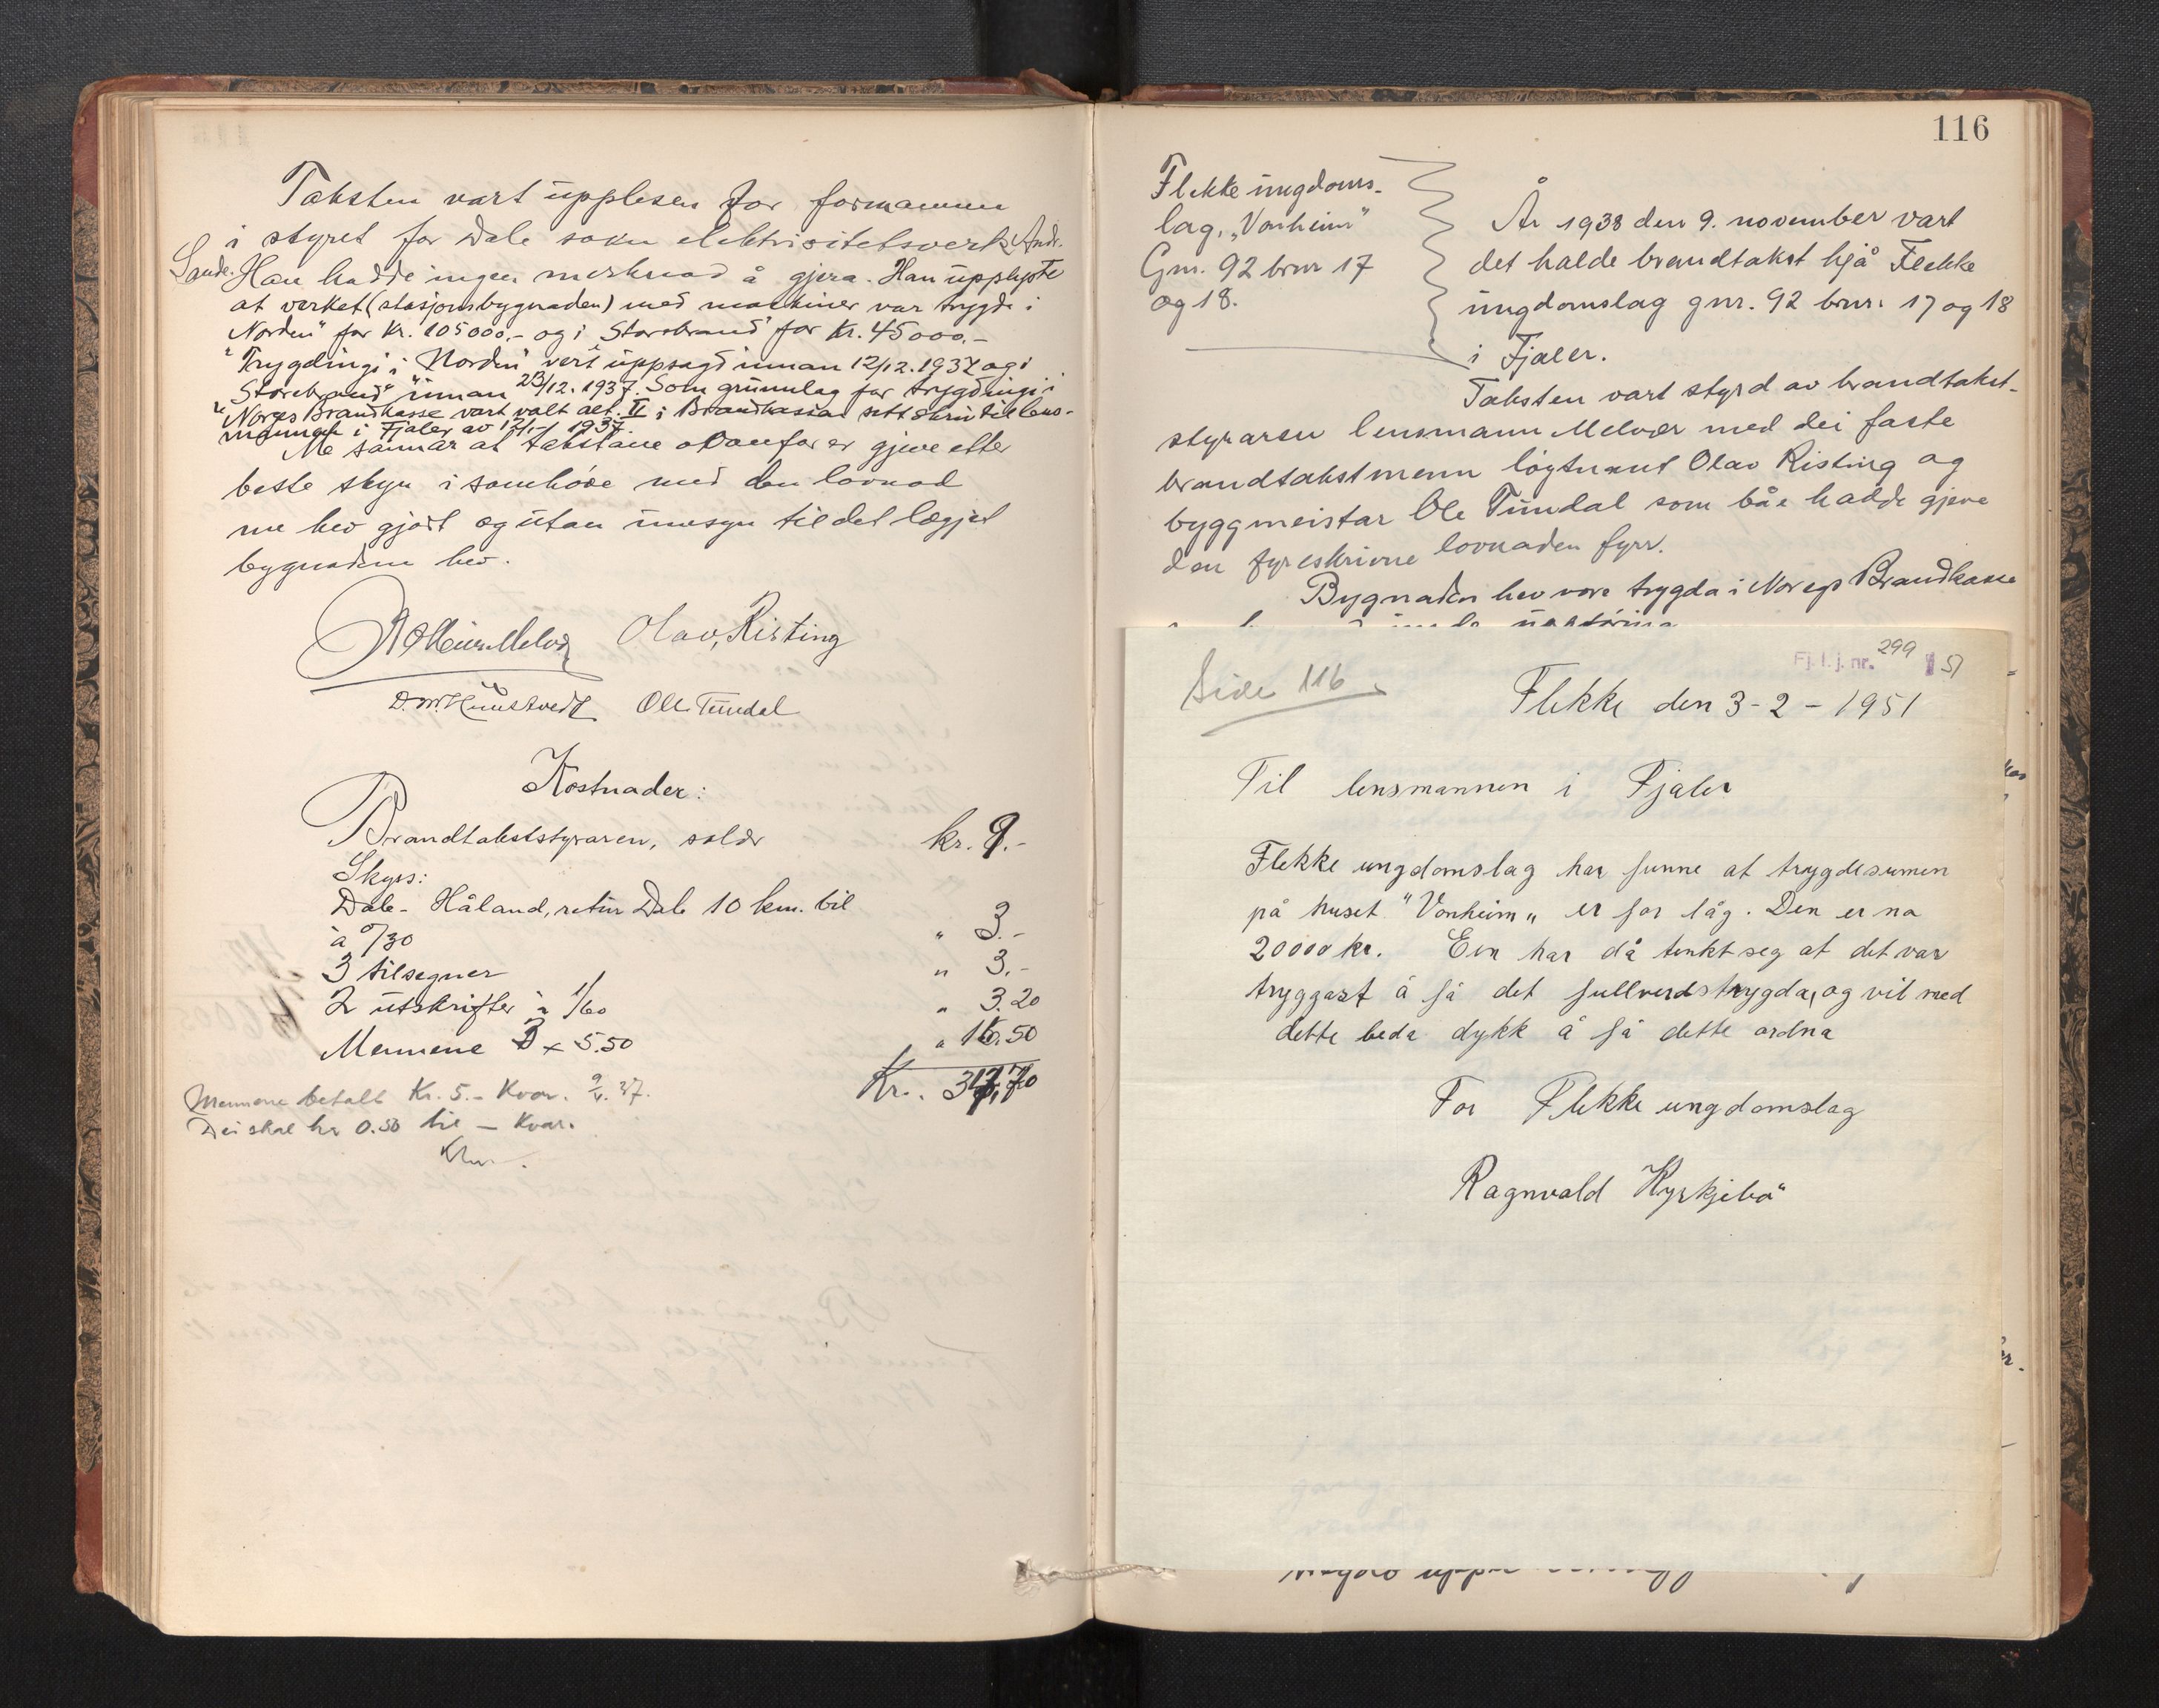 Taksten vart upplesen for formannen
i styret for Dale sokn elektrisitetsverk, Andr.
Sande. Han hadde ingen merknad å gjera. Han upplyste
at verket (stasjonsbygnaden) med maskiner var trygda i
"Norden" for kr. 105000,- og i "Storebrand" for kr. 45000,-
Trygdingi i "Norden" vert uppsagd innan 12/12.1937 og i
"Storebrand" innan 23/12.1937. Som grunnlag for trygdingi i
Norges Brandkasse vart valt alt. II i Brandkassa sitt skriv til lens-
mannen i Fjaler av 1937.
Me sannar at takstane ovanfor er gjeve etter
beste skyn i samhøve med den lovnad
me hev gjort og utan umsyn til det lægjet
bygnadene hev.
Olav Risting
Ole Tundal
Kostnader:
Brandtakststyraren, salær kr. 9.-
Skyss:
Dale - Håland, retur Dale 10 km. bil
à 0/30 " 3.-
3 tilsegner " 3.-
2 utskrifter à 1/60 " 3.20
Mennene 3 x 5.50 " 16.50
Kr. 37,70
Mennene betalt Kr. 5.- kvar. 9/4. 37.
Dei skal ha 0.50 til - kvar.
116
Flekke ungdoms-
lag, "Vonheim"
Gnr. 92 brnr 17
og 18.
År 1938 den 9. november vart
det halde brandtakst hjå Flekke
ungdomslag gnr. 92 brnr. 17 og 18
i Fjaler.
Taksten vart styrd av brandtakst-
styraren lensmann Melvær med dei faste
brandtakstmenn løytnant Olav Risting og
byggmeistar Ole Tundal som båe hadde gjeve
den fyreskrivne lovnaden fyrr.
Bygnaden hev vore trygda i Noregs Brandkasse
Side 116
Fj. l. j. nr. 299 51
Flekke den 3-2-1951
Til lensmannen i Fjaler
Flekke ungdomslag har funne at trygdesumen
på huset "Vonheim" er for låg. Den er na
20000 kr. Ein har då tenkt seg at det var
tryggast å få det fullverdstrygda, og vil med
dette beda dykk å få dette ordna
For Flekke ungdomslag
Ragnvald Kyrkjebø